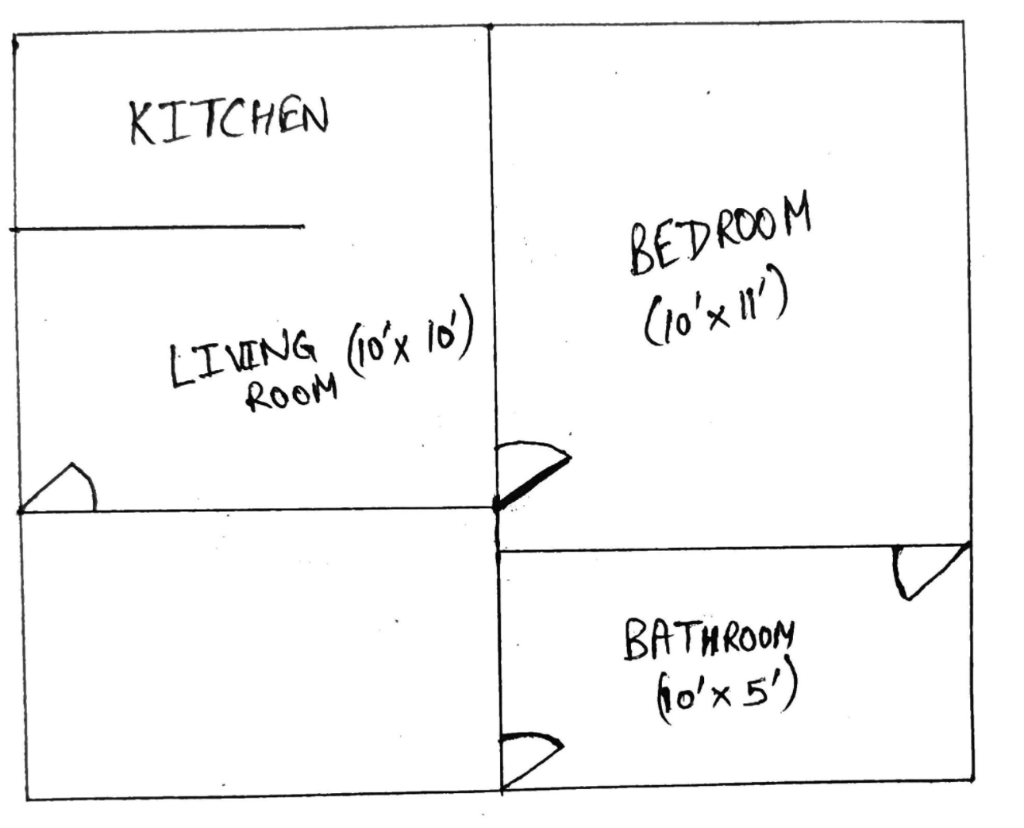 KITCHEN
LIVING (10'x 10')
ROOM
BEDROOM
(10'x 11')
BATHROOM
(10'x 5')